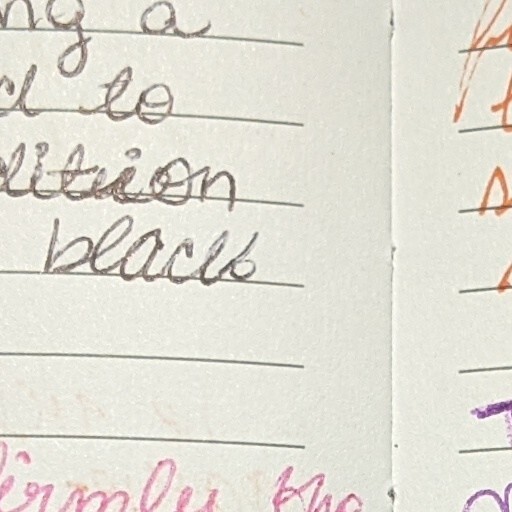 ng a
d to
lition
black
irmly the